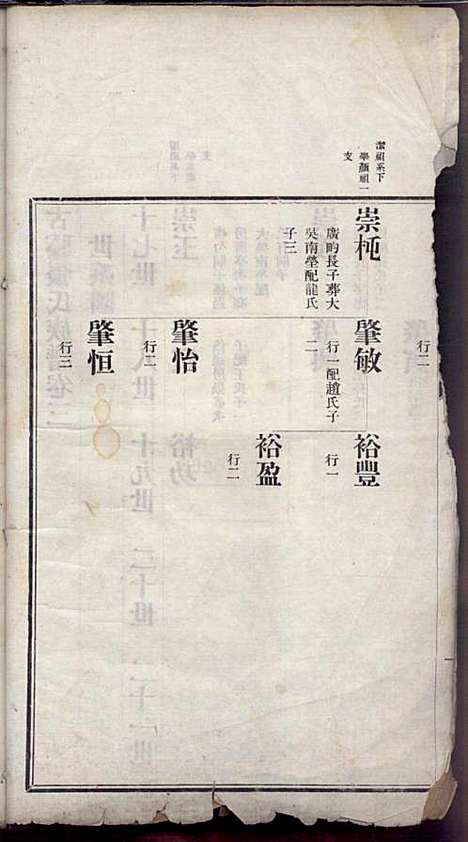 潔祖系下
學顏祖一
支
崇杶
廣畇長子葬大
吳南塋配龍氏
子三
行二
肇敏
行一配趙氏子
二
肇怡
行二
肇恒
行三
裕豐
行一
裕盈
行二